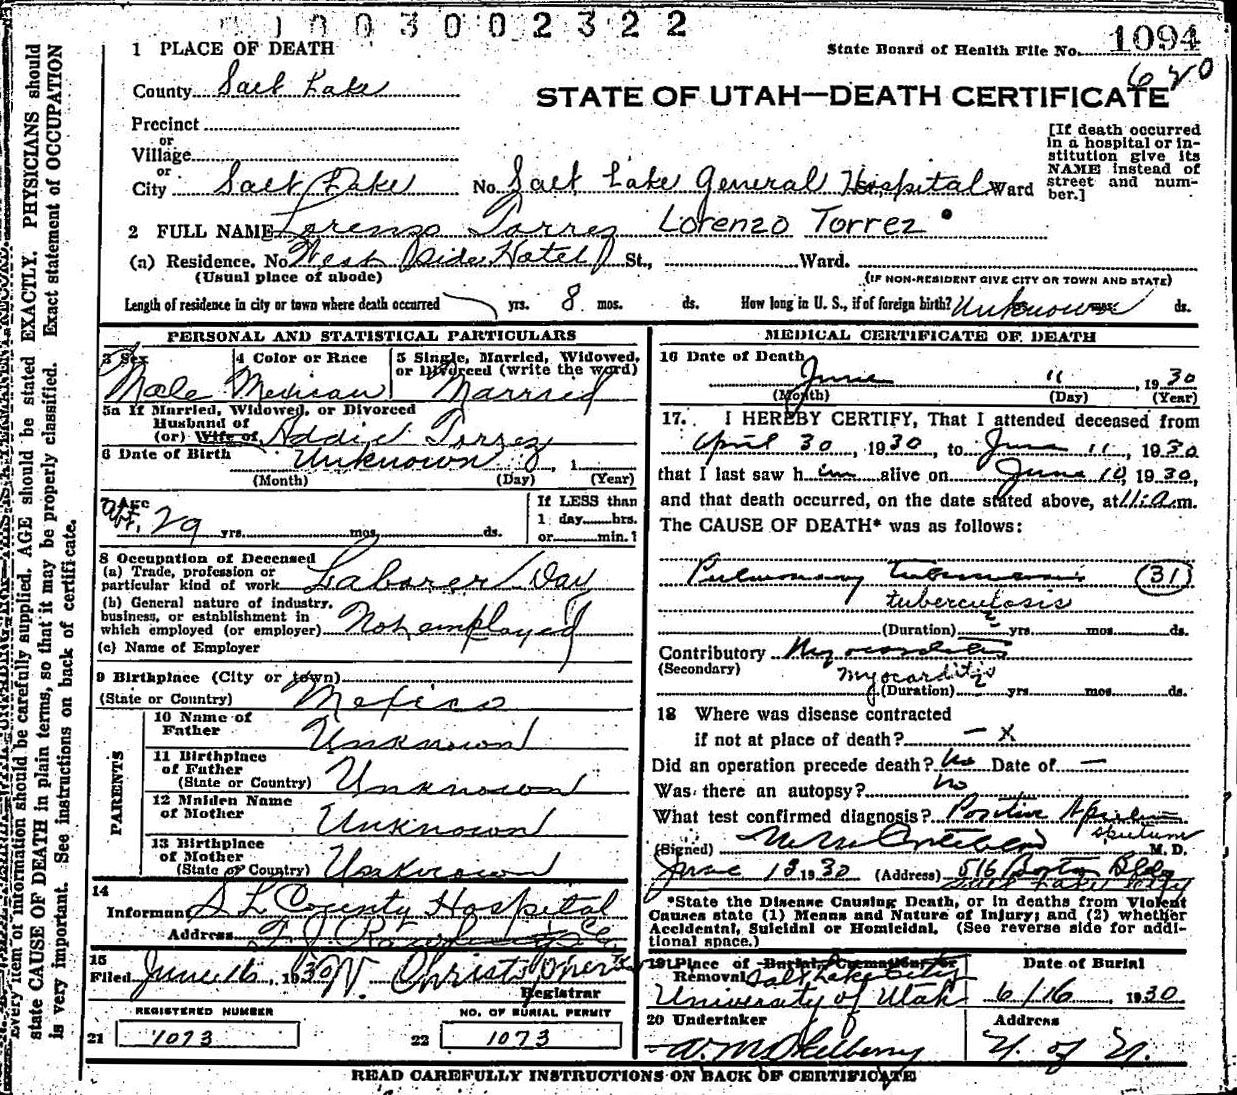 1003002322
1 PLACE OF DEATH
State Board of Health File No. 1094
620
County Salt Lake
STATE OF UTAH—DEATH CERTIFICATE
Precinct
or
Village
or
City Salt Lake No. Salt Lake General Hospital Ward
[If death occurred
in a hospital or in-
stitution give its
NAME instead of
street and num-
ber.]
2 FULL NAME Lorenzo Torrez Lorenzo Torrez
(a) Residence. No. West Side Hotel St., Ward.
(Usual place of abode) (IF NON-RESIDENT GIVE CITY OR TOWN AND STATE)
Length of residence in city or town where death occurred yrs. 8 mos. ds. How long in U. S., if of foreign birth? Unknown mos. ds.
PERSONAL AND STATISTICAL PARTICULARS
3 Sex 4 Color or Race 5 Single, Married, Widowed,
or Divorced (write the word)
Male Mexican Married
5a If Married, Widowed, or Divorced
Husband of
(or) Wife of Addie Torrez
6 Date of Birth Unknown , 1
(Month) (Day) (Year)
7 Age
abt. 29 yrs. mos. ds.
If LESS than
1 day hrs.
or min.?
8 Occupation of Deceased
(a) Trade, profession or
particular kind of work Laborer Day
(b) General nature of industry,
business, or establishment in
which employed (or employer) Not employed
(c) Name of Employer
9 Birthplace (City or town)
(State or Country) Mexico
PARENTS
10 Name of
Father Unknown
11 Birthplace
of Father
(State or Country) Unknown
12 Maiden Name
of Mother Unknown
13 Birthplace
of Mother
(State or Country) Unknown
14
Informant S L County Hospital
Address
15
Filed June 16, 1930 Registrar
REGISTERED NUMBER NO. OF BURIAL PERMIT
21 1073 22 1073
MEDICAL CERTIFICATE OF DEATH
16 Date of Death
June 11, 1930
(Month) (Day) (Year)
17. I HEREBY CERTIFY, That I attended deceased from
April 30, 1930, to June 11, 1930
that I last saw him alive on June 10, 1930,
and that death occurred, on the date stated above, at 11:a.m.
The CAUSE OF DEATH* was as follows:
Pulmonary tuberculosis (31)
tuberculosis
(Duration) yrs. mos. ds.
Contributory Myocarditis
(Secondary) myocarditis
(Duration) yrs. mos. ds.
18 Where was disease contracted
if not at place of death? — X
Did an operation precede death? No Date of —
Was there an autopsy? No
What test confirmed diagnosis? Positive
sputum
(Signed) M. D.
June 13, 1930 (Address) 516 Boston Bldg
Salt Lake City
*State the Disease Causing Death, or in deaths from Violent
Causes state (1) Means and Nature of Injury; and (2) whether
Accidental, Suicidal or Homicidal. (See reverse side for addi-
tional space.)
19 Place of Burial, Cremation or
Removal Salt Lake City
University of Utah
Date of Burial
6/16, 1930
20 Undertaker Address
U. of U.
READ CAREFULLY INSTRUCTIONS ON BACK OF CERTIFICATE
Every item of information should be carefully supplied. AGE should be stated EXACTLY. PHYSICIANS should
state CAUSE OF DEATH in plain terms, so that it may be properly classified. Exact statement of OCCUPATION
is very important. See instructions on back of certificate.